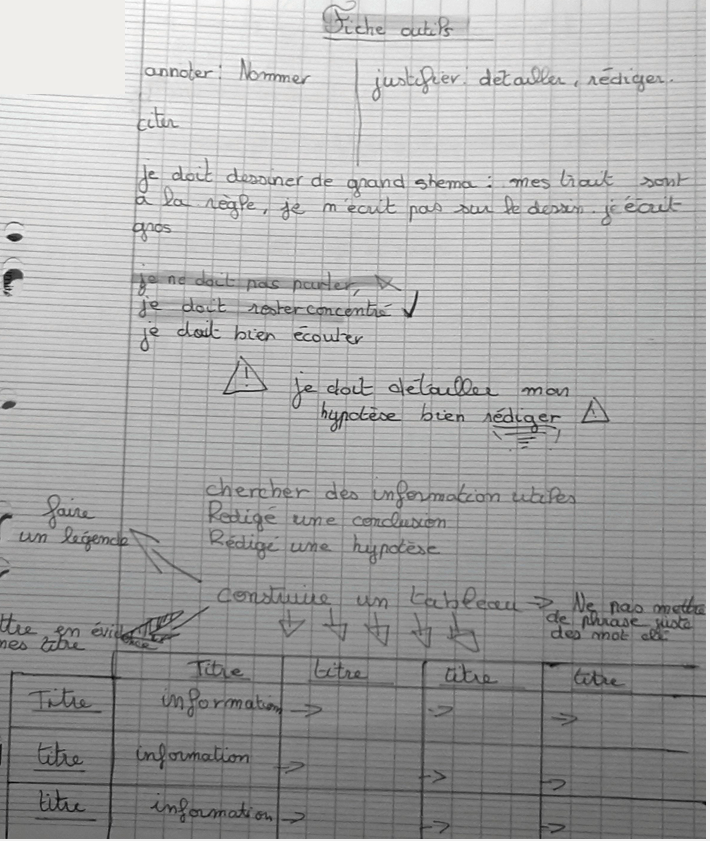 Fiche outils
annoter : Nommer
justifier : détailler, rédiger.
citer
je doit dessiner de grand shema : mes trait sont
à la règle, je m'écrit pas sur le dessin. j'écrit
gros
je ne doit pas parler,
je doit rester concentré ✓
je doit bien écouter
⚠ je doit détailler mon
hypotèse bien rédiger ⚠
chercher des information utiles
Redigé une conclusion
Rédigé une hypotèse
faire
un légende
construire un tableau → Ne pas mettre
de phrase juste
des mot clé
ttre en évidence
mes titre
Titre titre titre titre
Titre information → → →
titre information → → →
titre information → → →